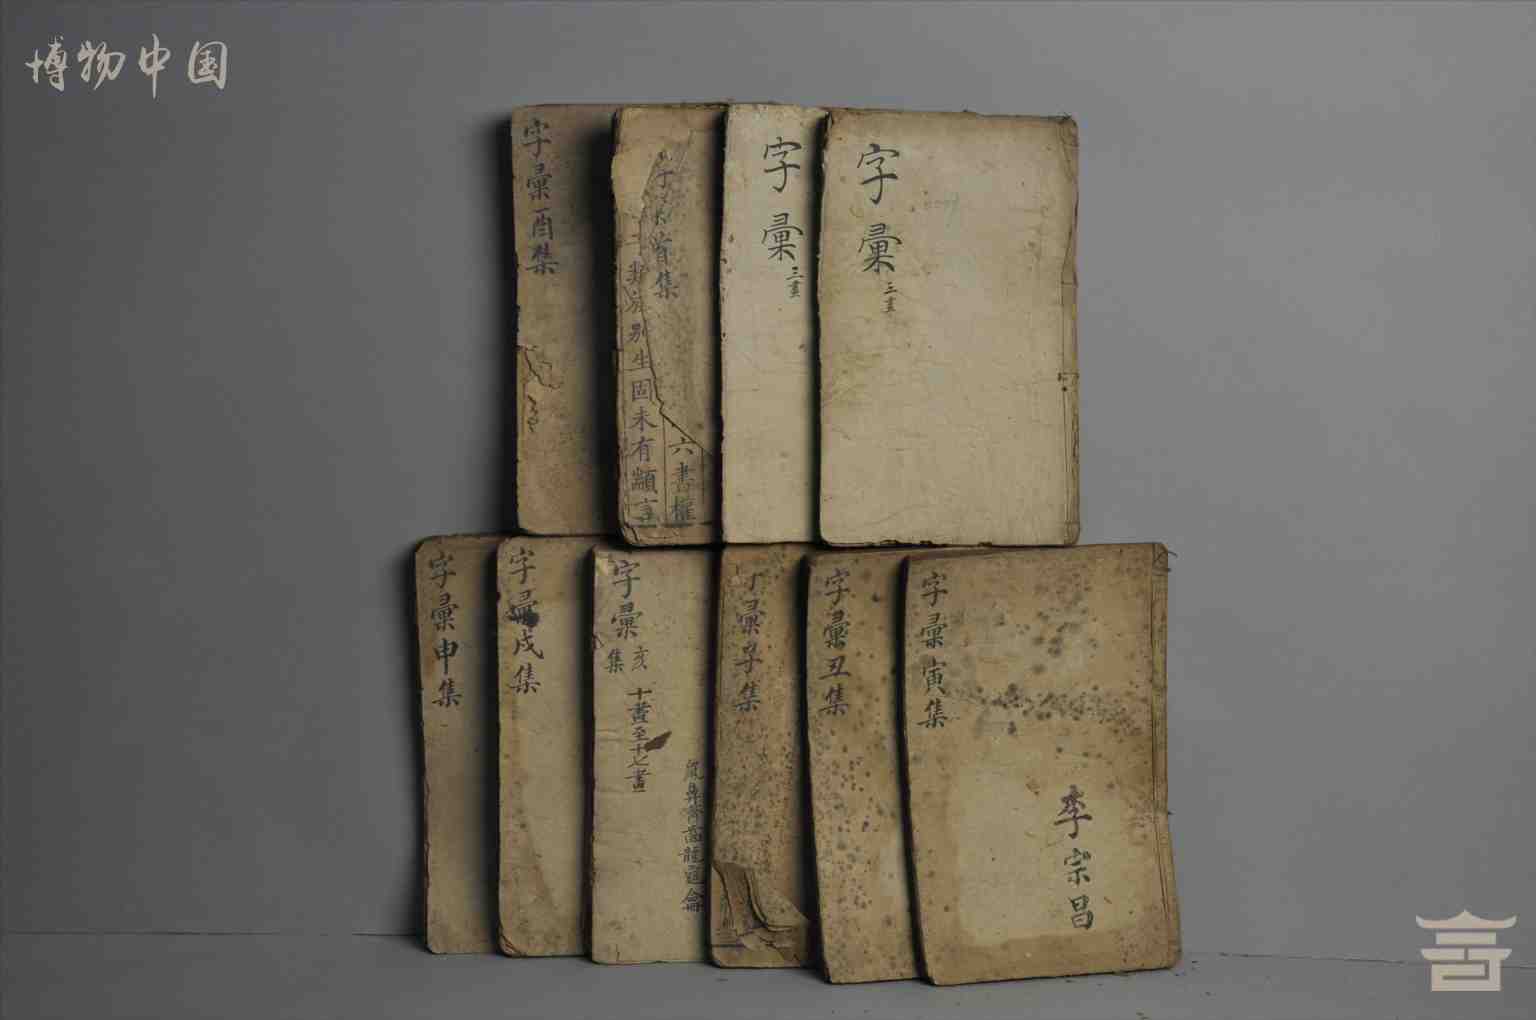 博物中国
字彙酉集
首集
類
別生固未有顓言
六書權
字彙
三畫
字彙
三畫
字彙申集
字彙戌集
字彙亥集
十畫至十七畫
鼻齊齒龍龠
彙子集
字彙丑集
字彙寅集
李宗昌